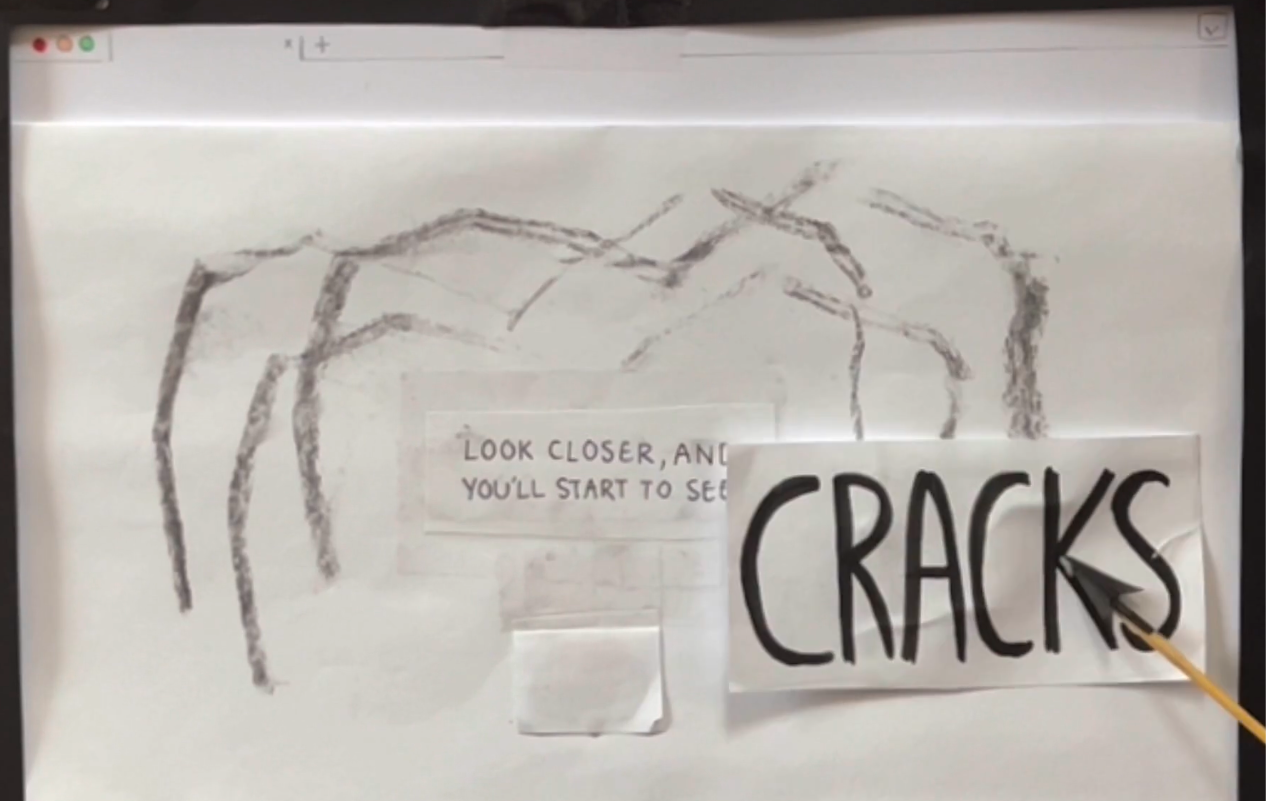 LOOK CLOSER, AND
YOU'LL START TO SEE
CRACKS